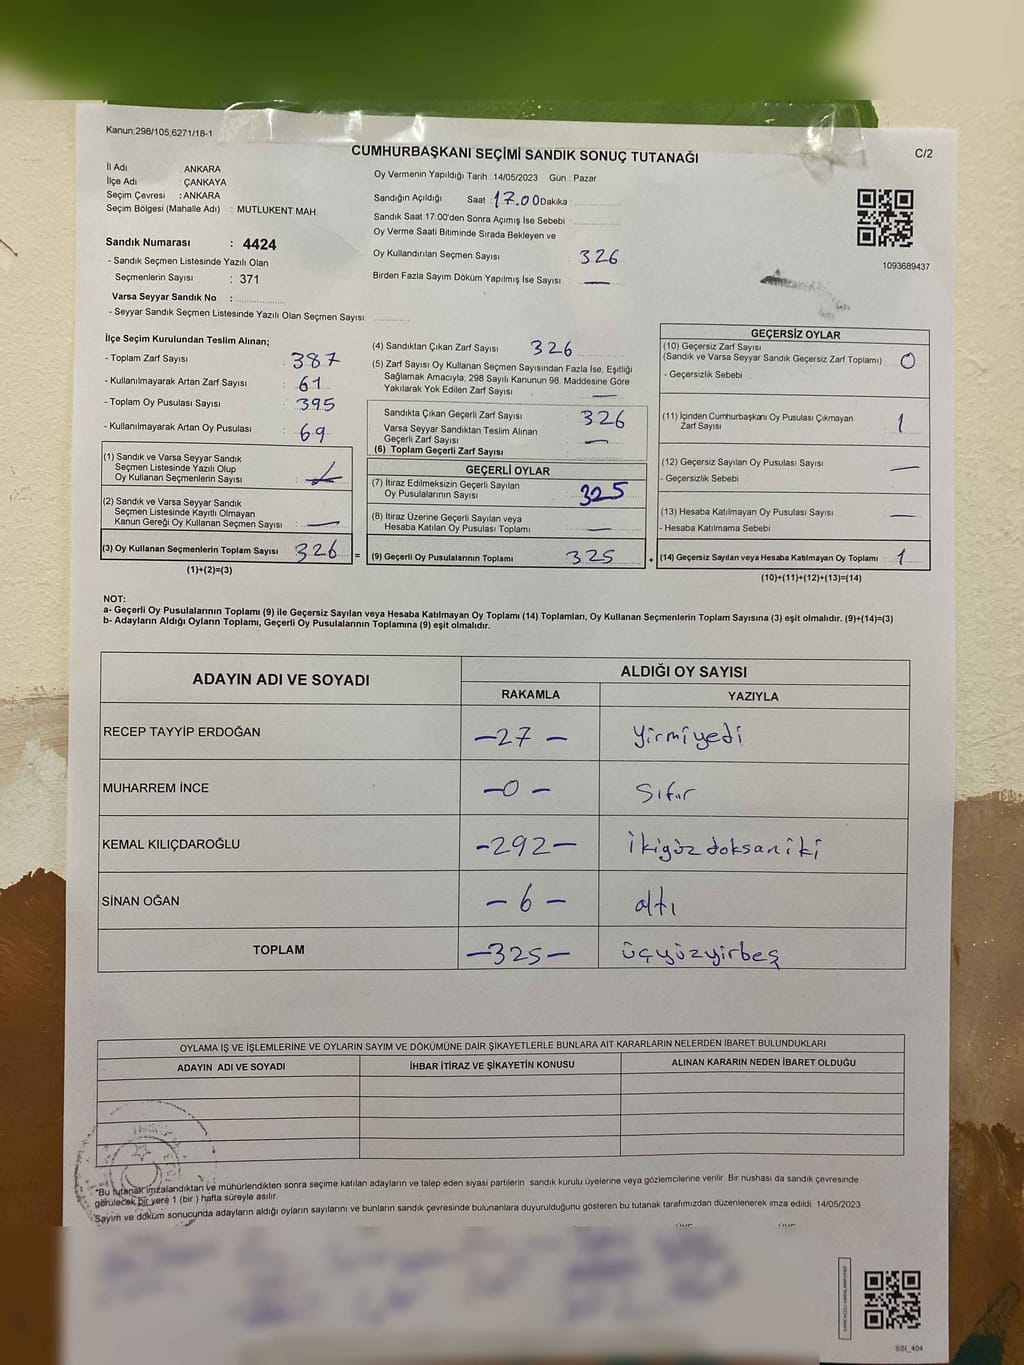 Kanun;298/105;6271/18-1
C/2
CUMHURBAŞKANI SEÇİMİ SANDIK SONUÇ TUTANAĞI
İl Adı : ANKARA
İlçe Adı : ÇANKAYA
Seçim Çevresi : ANKARA
Seçim Bölgesi (Mahalle Adı) : MUTLUKENT MAH.
Sandık Numarası : 4424
- Sandık Seçmen Listesinde Yazılı Olan
Seçmenlerin Sayısı : 371
Varsa Seyyar Sandık No :
- Seyyar Sandık Seçmen Listesinde Yazılı Olan Seçmen Sayısı:
Oy Vermenin Yapıldığı Tarih : 14/05/2023 Gün : Pazar
Sandığın Açıldığı Saat : 17.00 Dakika :
Sandık Saat 17:00'den Sonra Açımış İse Sebebi :
Oy Verme Saati Bitiminde Sırada Bekleyen ve
Oy Kullandırılan Seçmen Sayısı : 326
Birden Fazla Sayım Döküm Yapılmış İse Sayısı : —
1093689437
İlçe Seçim Kurulundan Teslim Alınan;
- Toplam Zarf Sayısı : 387
- Kullanılmayarak Artan Zarf Sayısı : 61
- Toplam Oy Pusulası Sayısı : 395
- Kullanılmayarak Artan Oy Pusulası : 69
(1) Sandık ve Varsa Seyyar Sandık
Seçmen Listesinde Yazılı Olup
Oy Kullanan Seçmenlerin Sayısı :
(2) Sandık ve Varsa Seyyar Sandık
Seçmen Listesinde Kayıtlı Olmayan
Kanun Gereği Oy Kullanan Seçmen Sayısı : —
(3) Oy Kullanan Seçmenlerin Toplam Sayısı : 326 =
(1)+(2)=(3)
(4) Sandıktan Çıkan Zarf Sayısı : 326
(5) Zarf Sayısı Oy Kullanan Seçmen Sayısından Fazla İse, Eşitliği
Sağlamak Amacıyla, 298 Sayılı Kanunun 98. Maddesine Göre
Yakılarak Yok Edilen Zarf Sayısı : —
Sandıkta Çıkan Geçerli Zarf Sayısı : 326
Varsa Seyyar Sandıktan Teslim Alınan
Geçerli Zarf Sayısı : —
(6) Toplam Geçerli Zarf Sayısı
GEÇERLİ OYLAR
(7) İtiraz Edilmeksizin Geçerli Sayılan
Oy Pusulalarının Sayısı : 325
(8) İtiraz Üzerine Geçerli Sayılan veya
Hesaba Katılan Oy Pusulası Toplamı : —
(9) Geçerli Oy Pusulalarının Toplamı : 325 +
GEÇERSİZ OYLAR
(10) Geçersiz Zarf Sayısı
(Sandık ve Varsa Seyyar Sandık Geçersiz Zarf Toplamı) : 0
- Geçersizlik Sebebi :
(11) İçinden Cumhurbaşkanı Oy Pusulası Çıkmayan
Zarf Sayısı : 1
(12) Geçersiz Sayılan Oy Pusulası Sayısı : —
- Geçersizlik Sebebi :
(13) Hesaba Katılmayan Oy Pusulası Sayısı : —
- Hesaba Katılmama Sebebi :
(14) Geçersiz Sayılan veya Hesaba Katılmayan Oy Toplamı : 1
(10)+(11)+(12)+(13)=(14)
NOT:
a- Geçerli Oy Pusulalarının Toplamı (9) ile Geçersiz Sayılan veya Hesaba Katılmayan Oy Toplamı (14) Toplamları, Oy Kullanan Seçmenlerin Toplam Sayısına (3) eşit olmalıdır. (9)+(14)=(3)
b- Adayların Aldığı Oyların Toplamı, Geçerli Oy Pusulalarının Toplamına (9) eşit olmalıdır.
ADAYIN ADI VE SOYADI ALDIĞI OY SAYISI
RAKAMLA YAZIYLA
RECEP TAYYİP ERDOĞAN —27— yirmiyedi
MUHARREM İNCE —0— sıfır
KEMAL KILIÇDAROĞLU —292— ikiyüzdoksaniki
SİNAN OĞAN —6— altı
TOPLAM —325— üçyüzyirbeş
OYLAMA İŞ VE İŞLEMLERİNE VE OYLARIN SAYIM VE DÖKÜMÜNE DAİR ŞİKAYETLERLE BUNLARA AİT KARARLARIN NELERDEN İBARET BULUNDUKLARI
ADAYIN ADI VE SOYADI İHBAR İTİRAZ VE ŞİKAYETİN KONUSU ALINAN KARARIN NEDEN İBARET OLDUĞU
*Bu tutanak imzalandıktan ve mühürlendikten sonra seçime katılan adayların ve talep eden siyasi partilerin sandık kurulu üyelerine veya gözlemcilerine verilir. Bir nüshası da sandık çevresinde
görülecek bir yere 1 (bir) hafta süreyle asılır.
Sayım ve döküm sonucunda adayların aldığı oyların sayılarını ve bunların sandık çevresinde bulunanlara duyurulduğunu gösteren bu tutanak tarafımızdan düzenlenerek imza edildi. 14/05/2023
SSI_404